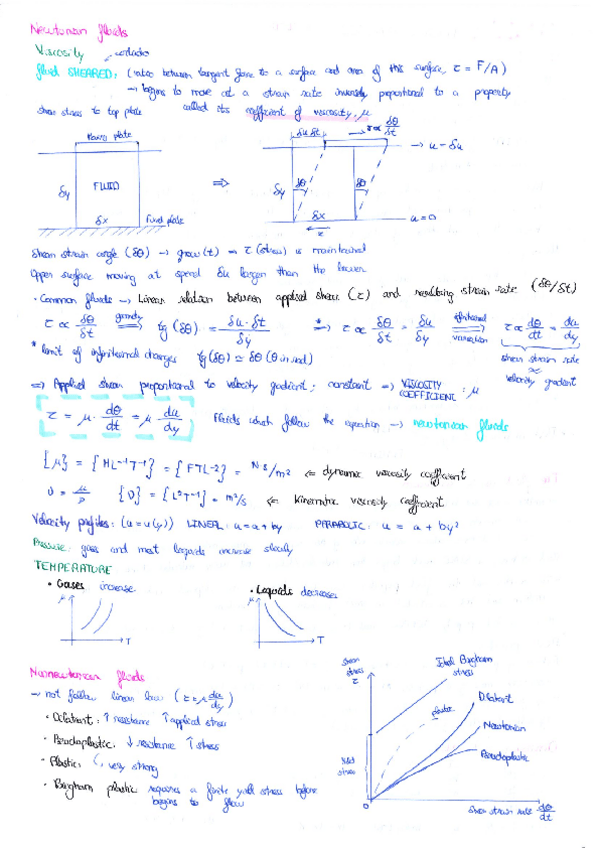 Newtonian fluids
Viscosity
fluid SHEARED, (ratio between tangent force to a surface and area of this surface, τ = F/A)
→ begins to move at a strain rate inversely proportional to a property
called its coefficient of viscosity, μ
shear stress to top plate
Moving plate
δu δt
τ ∝ δθ/δt
→ u = δu
δy
FLUID
⇒
δy
δθ
δθ
δx
Fixed plate
δx
u = 0
τ
Shear strain angle (δθ) → grow (t) ⇒ τ (stress) is maintained
Upper surface moving at speed δu larger than the lower
· Common fluids → Linear relation between applied shear (τ) and resulting strain rate (δθ/δt)
τ ∝ δθ/δt ⇒ tg (δθ) = δu·δt/δy *⇒ τ ∝ δθ/δt = δu/δy ⇒ τ ∝ dθ/dt = du/dy
geometry
infinitesimal
variation
* limit of infinitesimal changes tg(δθ) ≃ δθ (θ in rad)
shear strain rate
∝
velocity gradient
⇒ Applied shear proportional to velocity gradient; constant ⇒ VISCOSITY COEFFICIENT: μ
τ = μ · dθ/dt = μ du/dy
Fluids which follow the equation → newtonian fluids
[μ] = {ML⁻¹T⁻¹} = {FTL⁻²} = N·s/m² ← dynamic viscosity coefficient
ν = μ/ρ {ν} = {L²T⁻¹} = m²/s ← Kinematic viscosity coefficient
Velocity profiles: (u = u(y)) LINEAR: u = a + by PARABOLIC: u = a + by²
Pressure: gases and most liquids increase slowly
TEMPERATURE
· Gases increase
· Liquids decreases
μ
T
μ
T
Nonnewtonian fluids
→ not follow linear law (τ = μ du/dy)
· Dilatant: ↑ resistance ↑ applied stress
· Pseudoplastic: ↓ resistance ↑ stress
· Plastic: very strong
· Bingham plastic requires a finite yield stress before
begins to flow
Shear
stress
τ
Ideal Bingham
stress
plastic
Dilatant
Newtonian
Pseudoplastic
Yield
stress
0
Shear strain rate dθ/dt